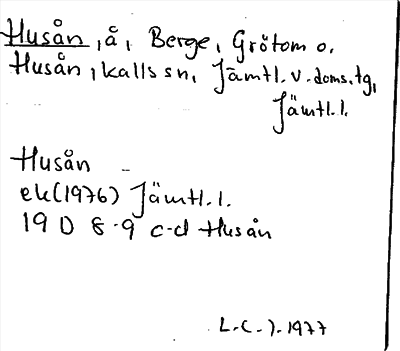 Husån, å, Berge, Grötom o.
Husån, kalls sn, Jämtl. v. doms. tg,
Jämtl. l.
Husån
ek (1976) Jämtl. l.
19 D 8-9 c-d Husån
L.C.J. 1977